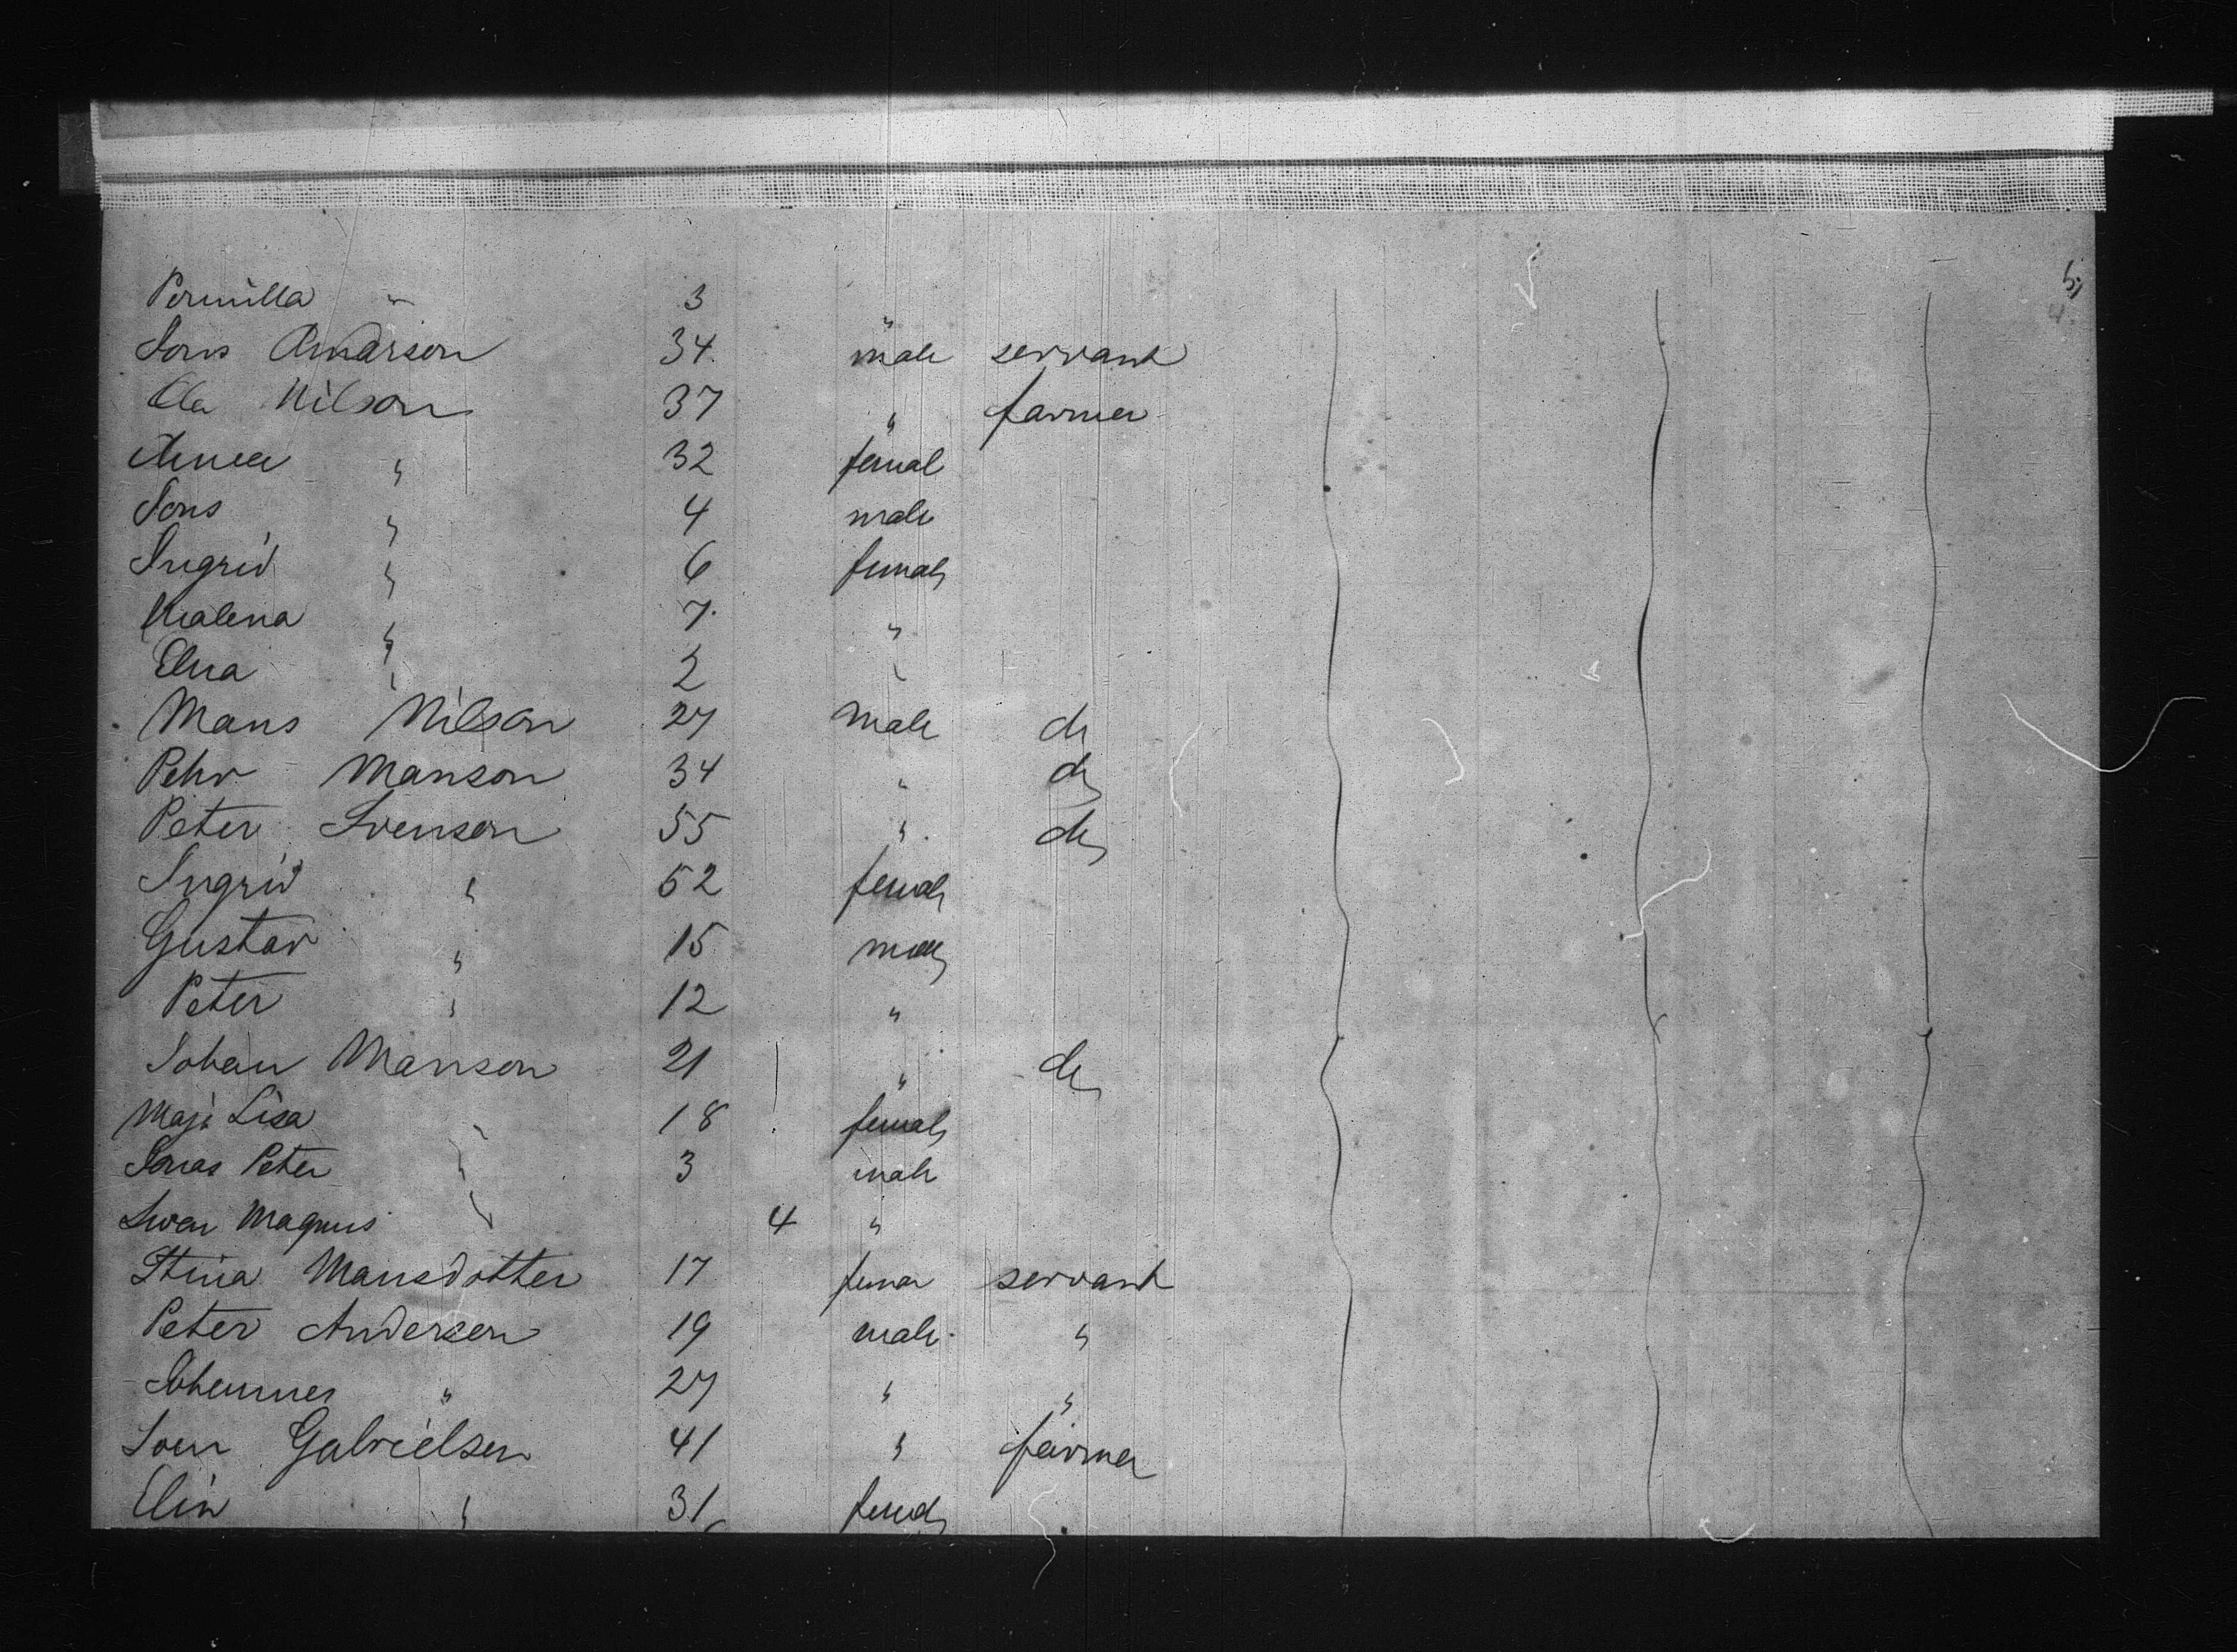 5,
4.
Pernilla " 3 "
Jons Anderson 34. male servant
Ola Nilson 37 " farmer
Anna " 32 femal
Jons " 4 male
Ingrid " 6 female
Malena " 7. "
Elna " 2 "
Mans Nilson 27 male do
Pehr Manson 34 " do
Peter Svenson 55 " do
Ingrid " 52 female
Gustav " 15 male
Peter " 12 "
Johan Manson 21 " do
Maja Lisa " 18 female
Jonas Peter " 3 male
Swen Magnus " 4 "
Stina Mansdotter 17 female servant
Peter Andersen 19 male "
Johannes " 27 " "
Sven Gabrielsen 41 " farmer
Elin " 31 female